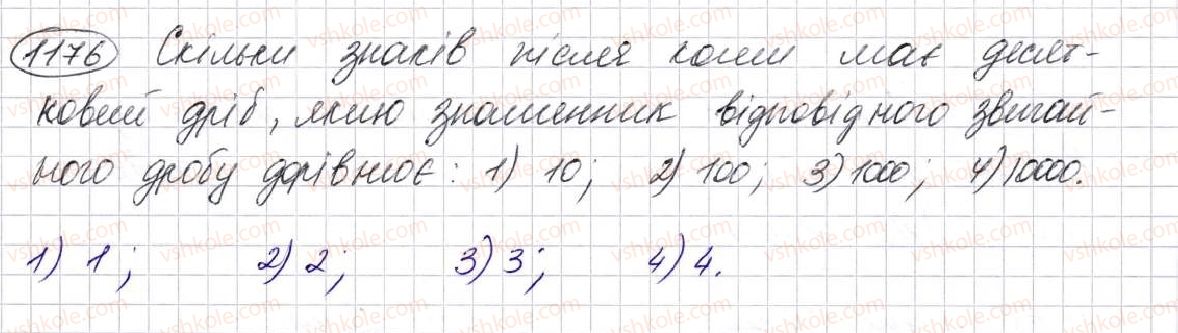 1176 Скільки знаків після коми має десят-
ковий дріб, якщо знаменник відповідного звичай-
ного дробу дорівнює: 1) 10; 2) 100; 3) 1000; 4) 10000.
1) 1; 2) 2; 3) 3; 4) 4.